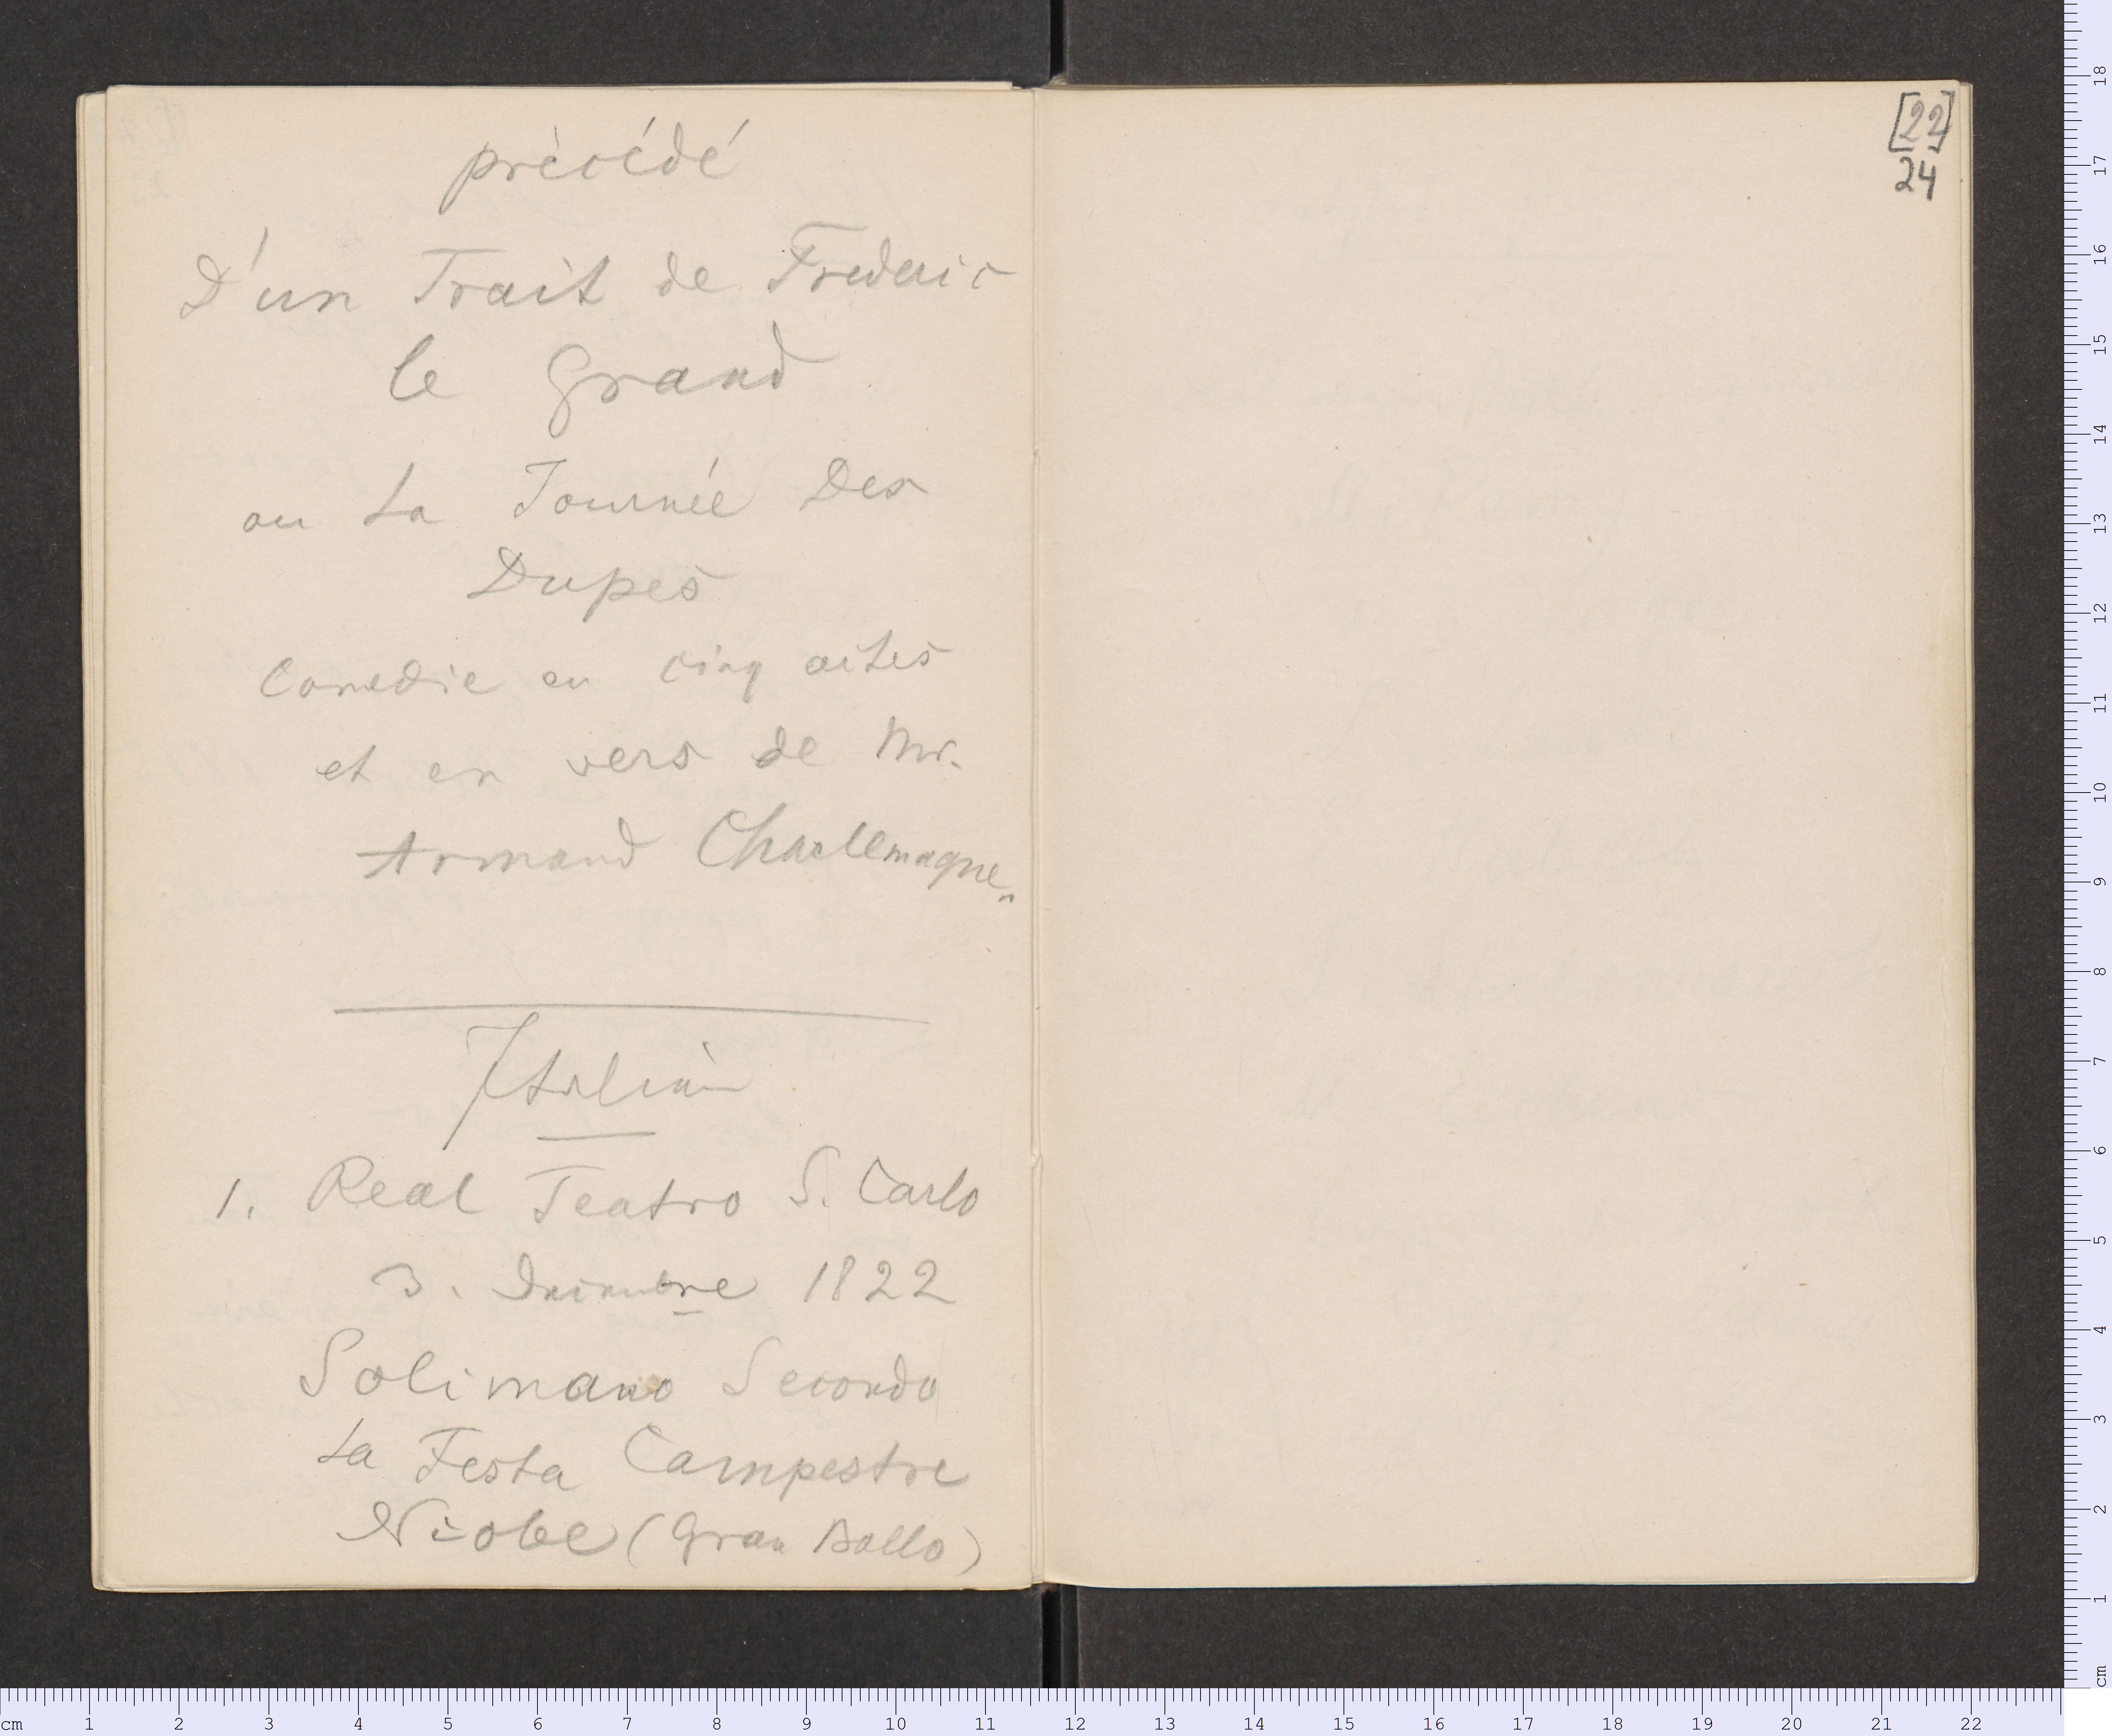 précédé
D'un Trait de Frederic
le Grand
ou La Journée Des
Dupes
Comedie en cinq actes
et en vers de Mr.
Armand Charlemagne.
Italien
1. Real Teatro S. Carlo
3. Decembre 1822
Solimano Secondo
La Festa Campestre
Niobe (Gran Ballo)
[22]
24